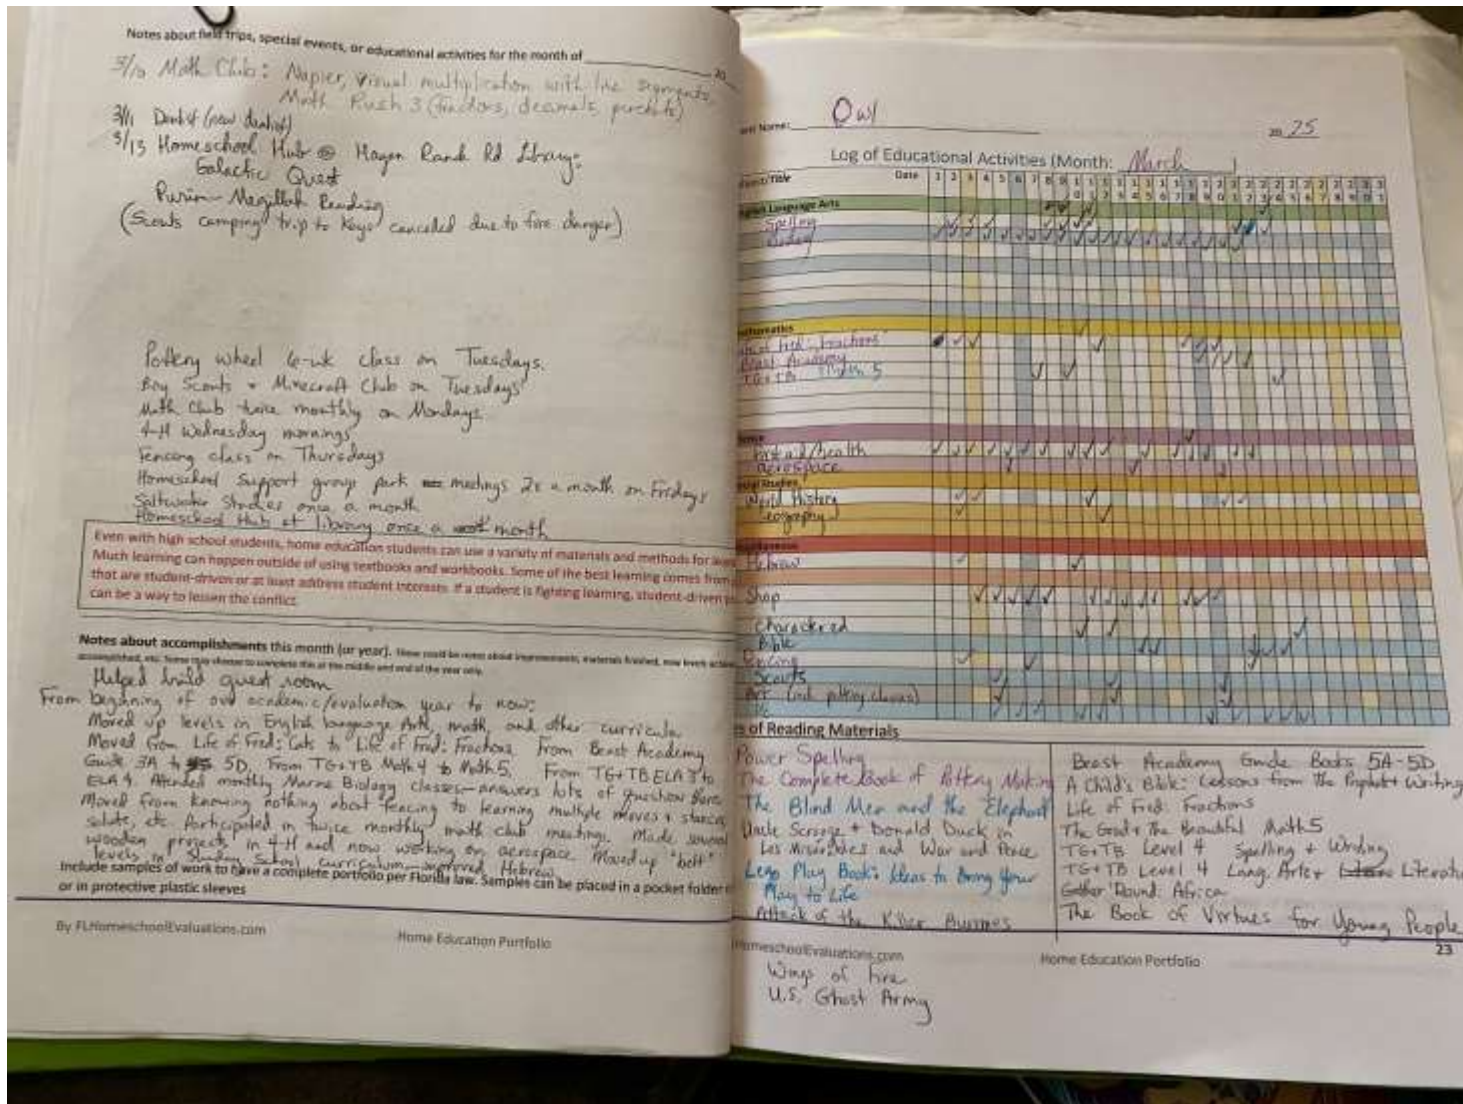 Notes about field trips, special events, or educational activities for the month of
20
3/10 Math Club: Napier, visual multiplication with line segments,
Math Rush 3 (fractors, decemals, percents)
3/11 Dentist (new dentist)
3/13 Homeschool Hub @ Hagen Ranch Rd Library:
Galactic Quest
Purim Megillah Reading
(Scouts camping trip to Keys canceled due to fire danger)
Pottery wheel 6-wk class on Tuesdays.
Boy Scouts + Minecraft Club on Tuesdays
Math Club twice monthly on Mondays
4-H Wednesday mornings
Fencing class on Thursdays
Homeschool Support group park meetings 2x a month on Fridays
Saltwater Studies once a month
Homeschool Hub at library once a month
Even with high school students, home education students can use a variety of materials and methods for
Much learning can happen outside of using textbooks and workbooks. Some of the best learning comes from
that are student-driven or at least address student interests. If a student is fighting learning, student-driven
can be a way to lessen the conflict.
Notes about accomplishments this month (or year). These could be notes about improvements, materials finished, new levels
accomplished, etc. Some may choose to complete this at the middle and end of the year only.
Helped build guest room
From beginning of our academic/evaluation year to now:
Moved up levels in English Language Arts, math, and other curricula
Moved from Life of Fred: Cats to Life of Fred: Fractions. From Beast Academy
Guide 3A to 5D. From TG+TB Math 4 to Math 5. From TG+TB ELA 3 to
ELA 4. Attended monthly Marine Biology classes—answers lots of question there
Moved from knowing nothing about fencing to learning multiple moves + stances,
salute, etc. Participated in twice monthly math club meetings. Made several
wooden projects in 4-H and now working on aerospace. Moved up "belt"
levels in Sunday School curriculum—improved Hebrew
Include samples of work to have a complete portfolio per Florida law. Samples can be placed in a pocket folder
or in protective plastic sleeves
By FLHomeschoolEvaluations.com
Home Education Portfolio
Name: Owl
2025
Log of Educational Activities (Month: March)
Title Date 1 2 3 4 5 6 7 8 9 10 11 12 13 14 15 16 17 18 19 20 21 22 23 24 25 26 27 28 29 30 31
Language Arts
Spelling
Mathematics
of Fred: Fractions
Beast Academy
TG+TB Math 5
First aid/health
aerospace
Studies
World History
Geography
Hebrew
Shop
character ed
Bible
Fencing
Scouts
Art (incl. pottery classes)
PE
of Reading Materials
Power Spelling
The Complete Book of Pottery Making
The Blind Men and the Elephant
Uncle Scrooge + Donald Duck in
Les Misérables and War and Peace
Lego Play Book: Ideas to Bring Your
Play to Life
Attack of the Killer Bunnies
Beast Academy Guide Books 5A-5D
A Child's Bible: Lessons from the Prophets + Writing
Life of Fred: Fractions
The Good + the Beautiful Math 5
TG+TB Level 4 Spelling + Writing
TG+TB Level 4 Lang. Arts + Literatu
Gather 'Round: Africa
The Book of Virtues for Young People
23
HomeschoolEvaluations.com
Home Education Portfolio
Wings of Fire
U.S. Ghost Army